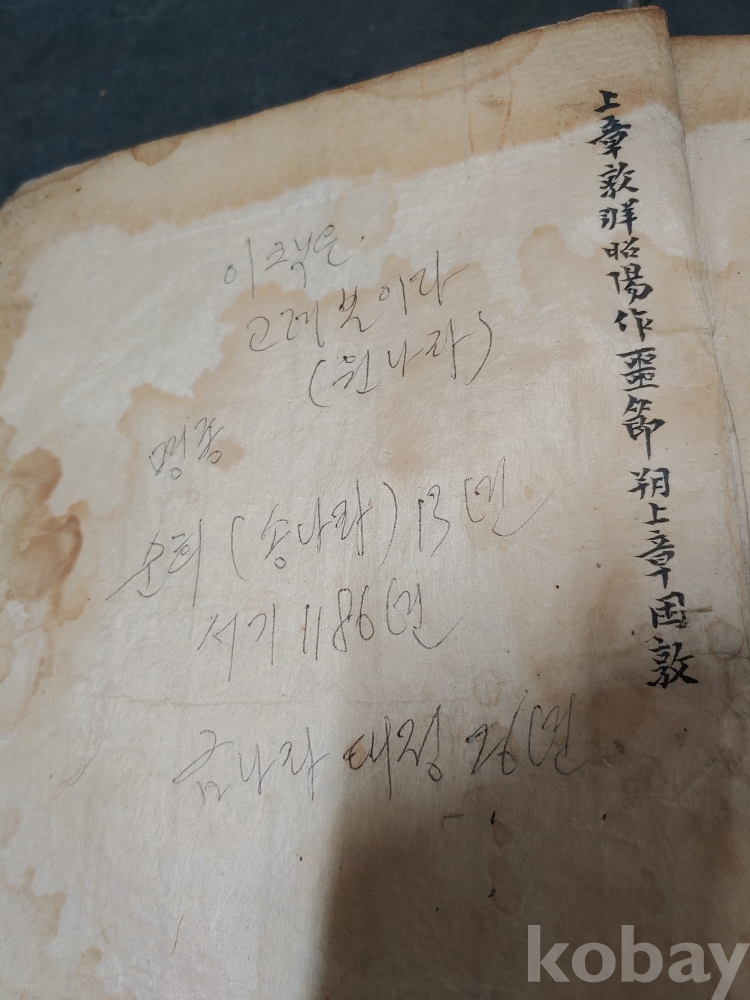 上章敦牂昭陽作噩節 朔上章困敦
이 책은.
고려본이다
(원나라)
명종
순희 (송나라) 13년
서기 1186년
금나라 대정 26년.
kobay